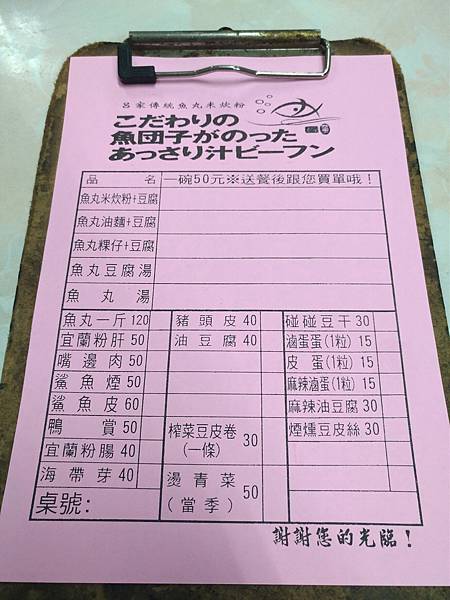 呂家傳統魚丸米炊粉
こだわりの
魚団子がのった
あっさり汁ビーフン
品名 一碗50元※送餐後跟您買單哦！
魚丸米炊粉+豆腐
魚丸油麵+豆腐
魚丸粿仔+豆腐
魚丸豆腐湯
魚丸湯
魚丸一斤 120 豬頭皮 40 碰碰豆干 30
宜蘭粉肝 50 油豆腐 40 滷蛋蛋(1粒) 15
嘴邊肉 50 皮蛋(1粒) 15
鯊魚煙 50 麻辣滷蛋(1粒) 15
鯊魚皮 60 麻辣油豆腐 30
鴨賞 50 榨菜豆皮卷(一條) 30 煙燻豆皮絲 30
宜蘭粉腸 40
海帶芽 40 燙青菜(當季) 50
桌號：
謝謝您的光臨！